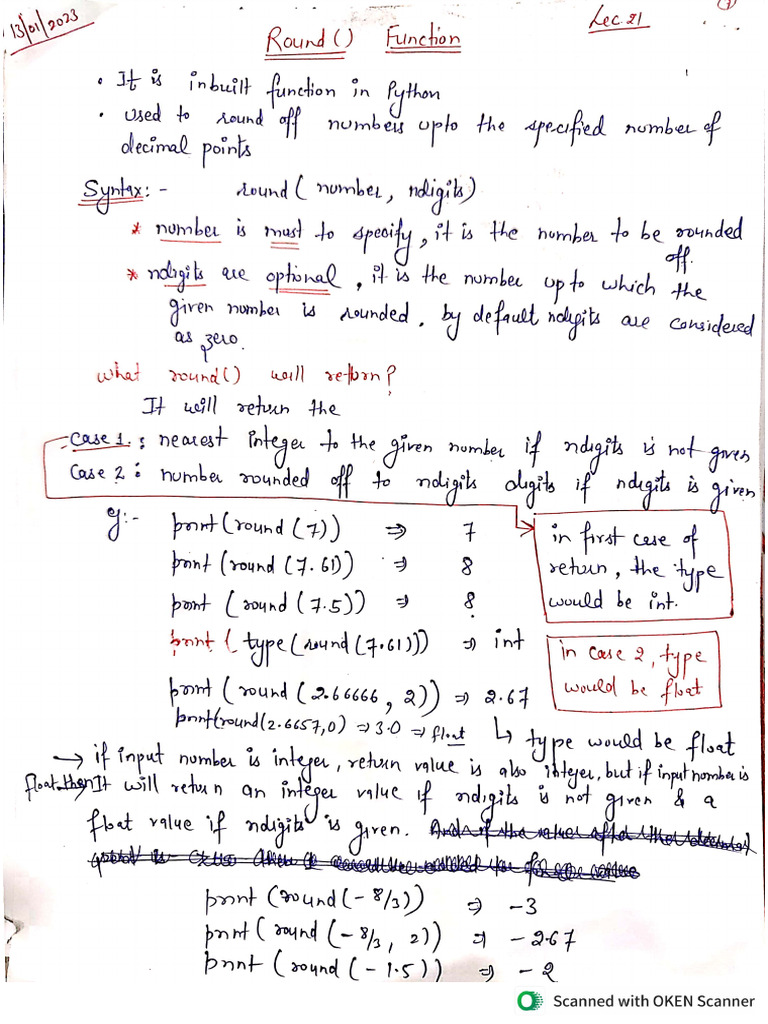 13/01/2023
Lec. 21
Round() Function
• It is inbuilt function in Python
• used to round off numbers upto the specified number of
decimal points
Syntax:- round( number, ndigits)
* number is must to specify, it is the number to be rounded
off.
* ndigits are optional, it is the number up to which the
given number is rounded. by default ndigits are considered
as zero.
what round() will return?
It will return the
Case 1.: nearest integer to the given number if ndigits is not given
Case 2: number rounded off to ndigits digits if ndigits is given
eg:- print(round(7)) ⇒ 7
print(round(7.61)) ⇒ 8
print (round(7.5)) ⇒ 8
print( type(round(7.61))) ⇒ int
print(round(2.66666, 2)) ⇒ 2.67
print(round(2.6657,0) ⇒ 3.0 ⇒ float
↳ type would be float
in first case of
return, the type
would be int.
in case 2, type
would be float
→ if input number is integer, return value is also integer, but if input number is
float then It will return an integer value if ndigits is not given & a
float value if ndigits is given.
print (round(-8/3)) ⇒ -3
print( round(-8/3, 2)) ⇒ -2.67
print (round(-1.5)) ⇒ -2
Scanned with OKEN Scanner